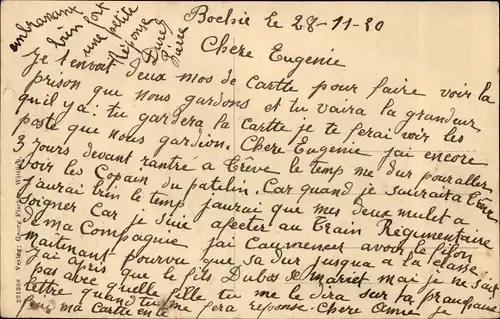 Bochie le 28-11-20
Chere Eugenie
Je t envoit deux mos de cartte pour faire voir la
prison que nous gardons et tu vaira la grandeur
qu'il ya. tu gardera la cartte je te ferai voir les
poste que nous gardion. Chere Eugenie jai encore
3 jours devant rantré a trêve le temp me dur pour aller
voir les Copain du patelin. Car quand je sauraita trêve
jaurai bien le temp jaurai que mes deux mulet a
soigner Car je suie afecter au train Régimentaire
de ma Compagnie jai Caumencer avoir le filon
matenant pourvu que sa dur jusqua a la classe
jai apris que le fils Dubos se mariet mai je ne sait
pas avec quelle fille tu me le dira sur ta prauchaine
lettre quand tu me fera réponse. Chere Amie je
fini ma cartte en te
embrassant
bien fort
une petite
Réponse
Pierre